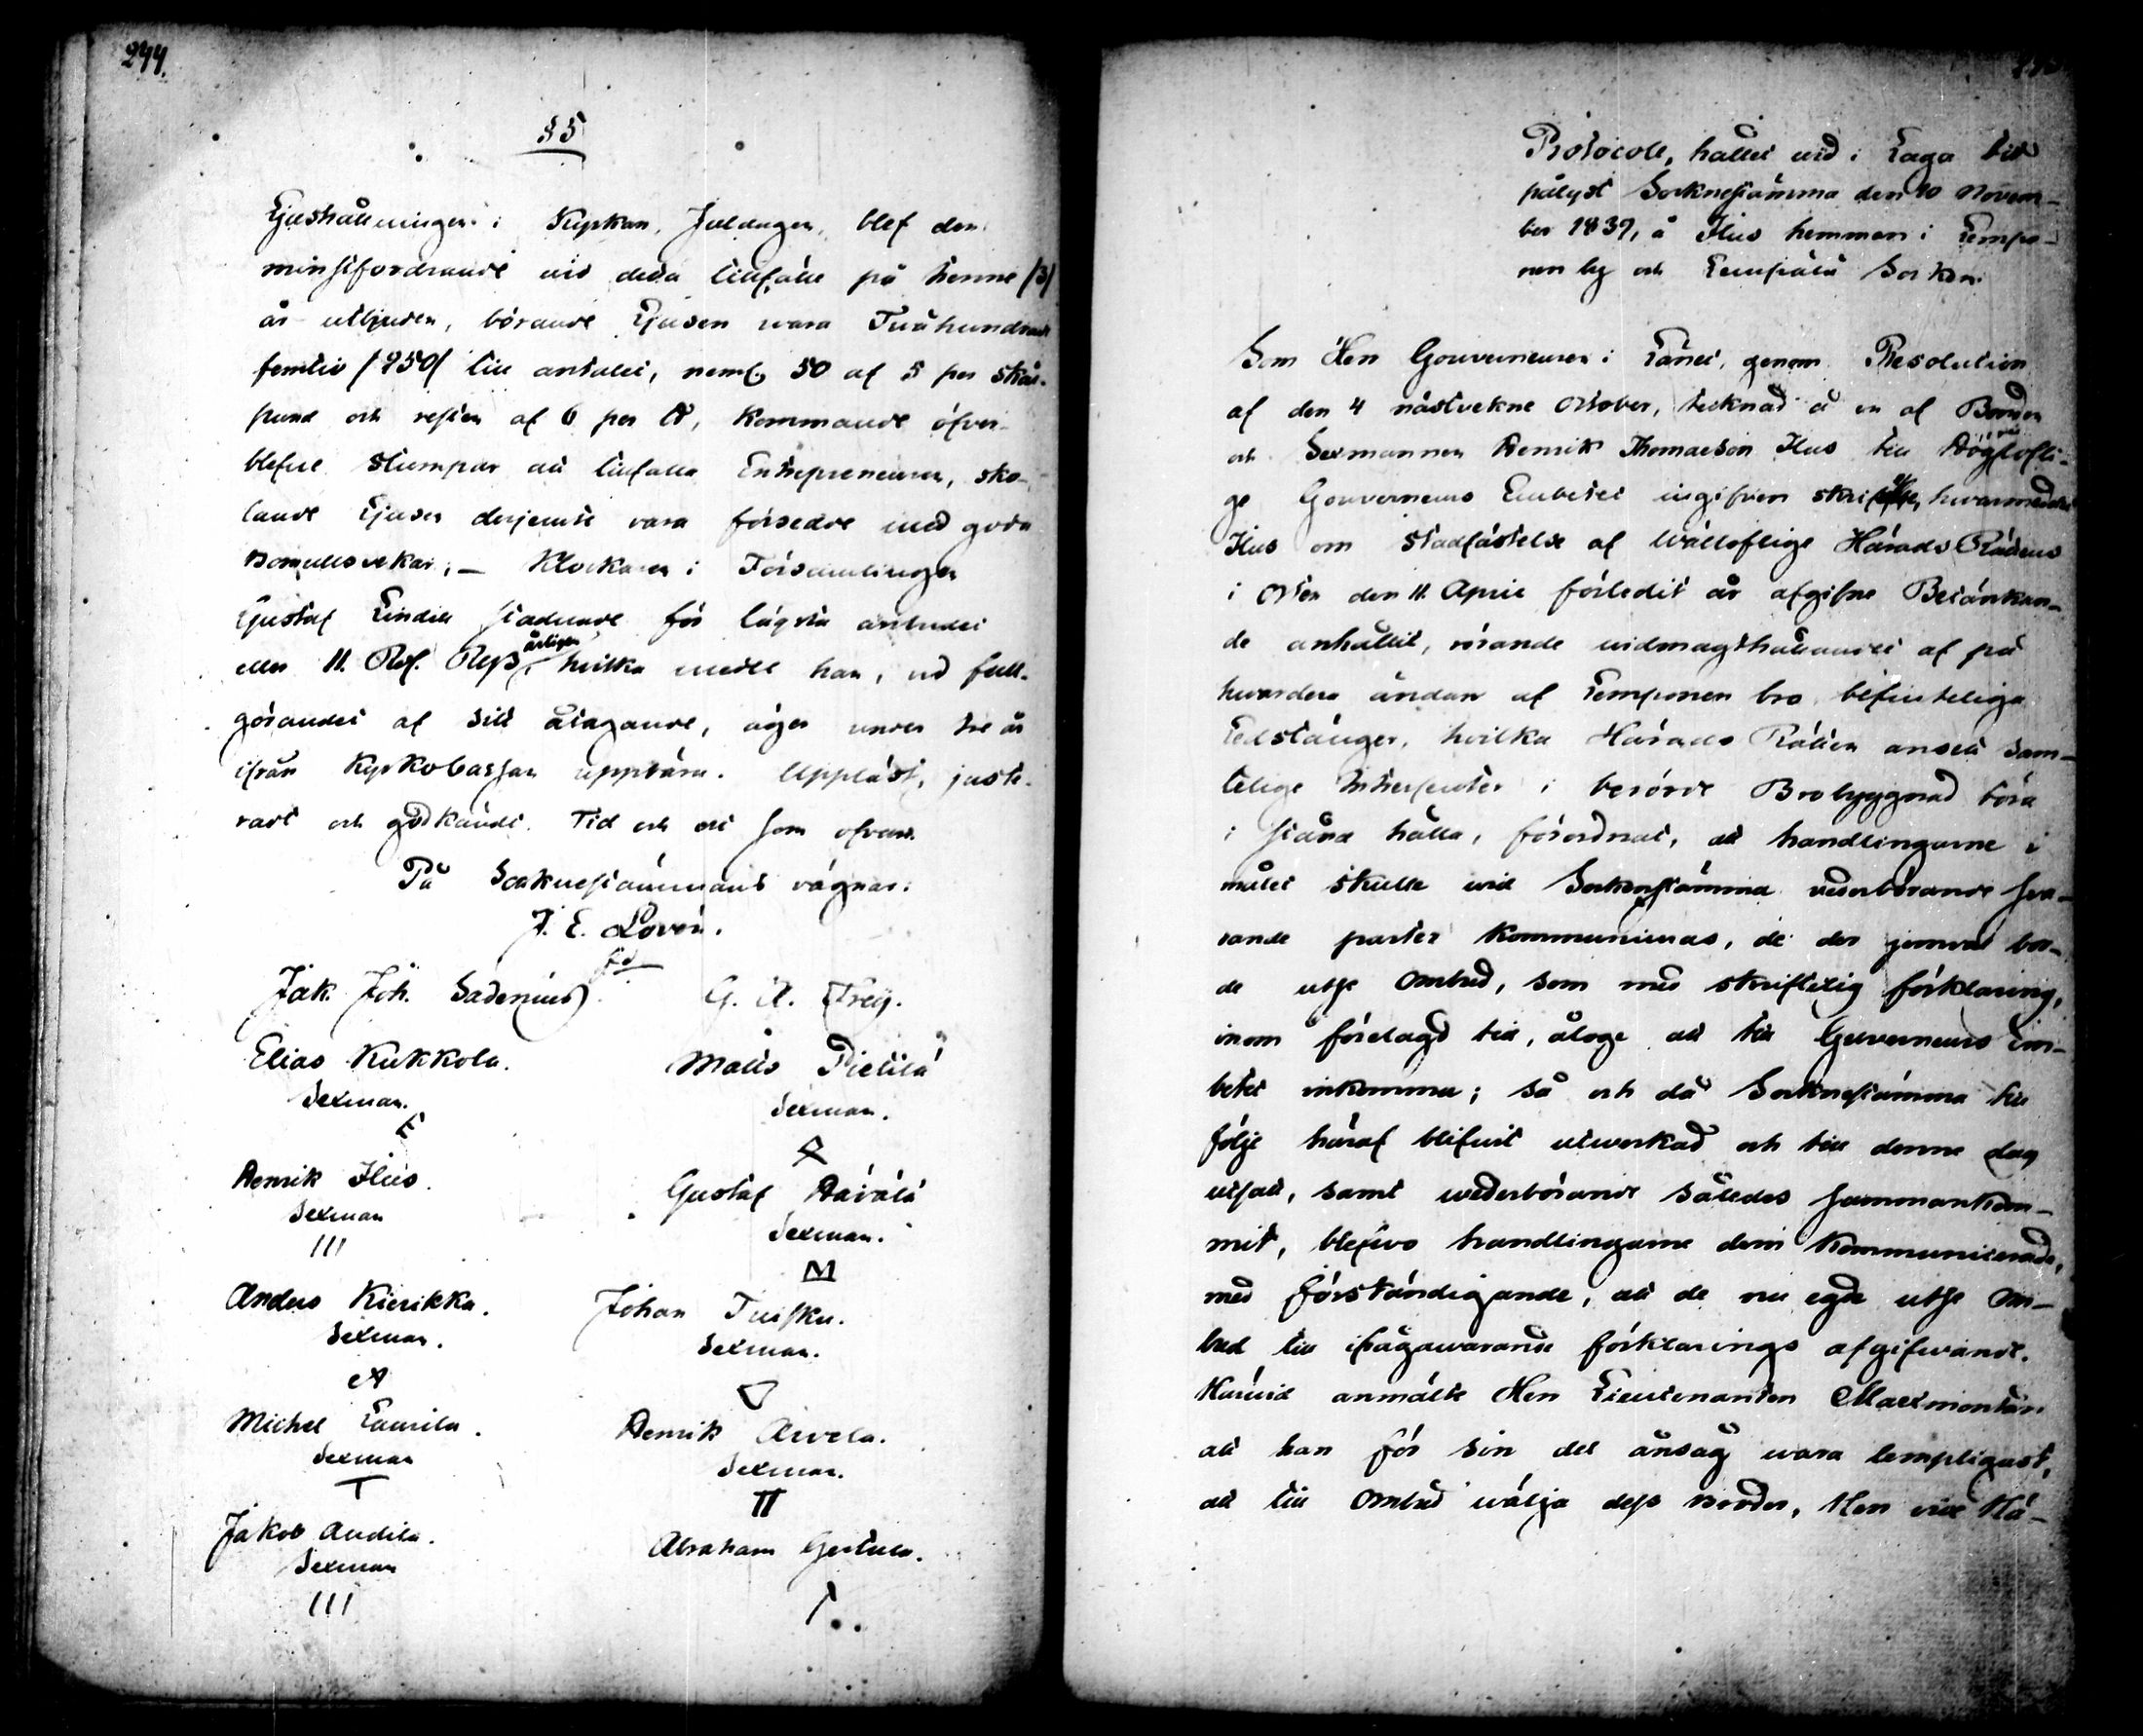 244.
§ 5
Ljushållningen i Kyrkan, Juldagen, blef den
minstfordrande vid detta tillfälle på trenne /3/
år utbjuden, börande Ljusen wara Tvåhundrade
femtio /250/ till antalet, neml. 50 af 5 per skål-
pund och resten af 6 per ℔, kommande öfver-
blefne stumpar att tillfalla Entrepreneuren, sko-
lande Ljusen derjemte vara försedde med goda
bomullsvekar; — Klockaren i Församlingen
Gustaf Lindell stadnade för lägsta anbudet
eller 11. Rub. Rysß årligen, hvilka medel han, vid full-
görandet af sitt åtagande, äger under tre år
ifrån Kyrkocassan uppbära. Uppläst, juste-
radt och godkändt. Tid och ort som ofvan.
På Socknestämmans vägnar:
J. E. Lovén.
Jak. Joh. Sadenius
G. A. Frey.
Elias Kukkola.
Sexman.
E
Matts Pietilä
Sexman.
Henrik Ilus.
Sexman
III
Gustaf Härälä
Sexman.
M
Anders Kierikka.
Sexman.
A
Johan Tuisku.
Sexman.
Michel Laurila.
Sexman
T
Henrik Arvela.
Sexman.
II
Jakob Andila.
Sexman
III
Abraham Gertula.
Protocoll, hållet vid i Laga tid
pålyst Socknestämma den 10 Novem-
ber 1839, å Ilus hemman i Lempo-
nen by och Lempälä Socken.
Som Herr Gouverneuren i Länet, genom Resolution
af den 4 nästvekne October, tecknad å en af Bonden
och Sexmannen Henrik Thomaeson Ilus till Höglofli-
ge Gouverneurs Embetet ingifven skrift, hvarmedelst
Ilus om stadfästelse af Vällofliga Härads Rättens
i Orten den 11. April förledit år afgifne Betänkan-
de anhållit, rörande vidmagthållandet af på
hvardera ändan af Lemponen bro befinteliga
Ledstänger, hvilka Härads Rätten ansett sam-
telige Intressenter i berörde Brobyggnad böra
i stånd hålla, förordnat, att handlingarne i
målet skulle vid Sockenstämma vederbörande sva-
rande parter kommuniceras, de der jemväl bor-
de utse Ombud, som med skriftelig förklaring,
inom förelagd tid, ålåge att till Guverneurs Em-
betet inkomma; så och då Socknestämma till
följe häraf blifvit utverkad och till denne dag
utsatt, samt wederbörande således sammankom-
mit, blefvo handlingarne dem kommunicerade,
med förständigande, att de nu egde utse Om-
bud till ifrågawarande förklarings afgifvande.
Härvid anmälte Herr Lieutenanten Maexmontan
att han för sin del ansåg wara lempligast,
att till Ombud wälja dess broder, Herr vice Hä-